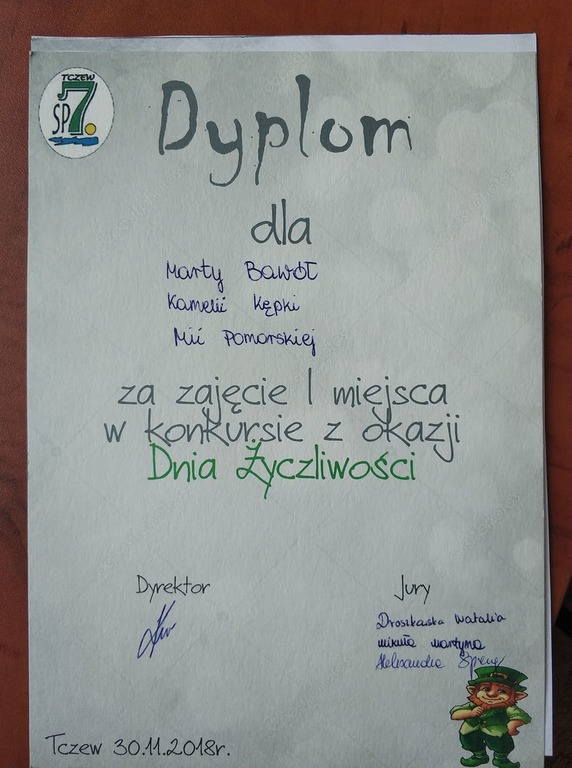 TCZEW
SP 7.
Dyplom
dla
Marty Bawół
Kamelii Kępki
Mii Pomorskiej
za zajęcie I miejsca
w konkursie z okazji
Dnia Życzliwości
Dyrektor
Jury
Natalia
Mikuła Martyna
Aleksandra
Tczew 30.11.2018r.